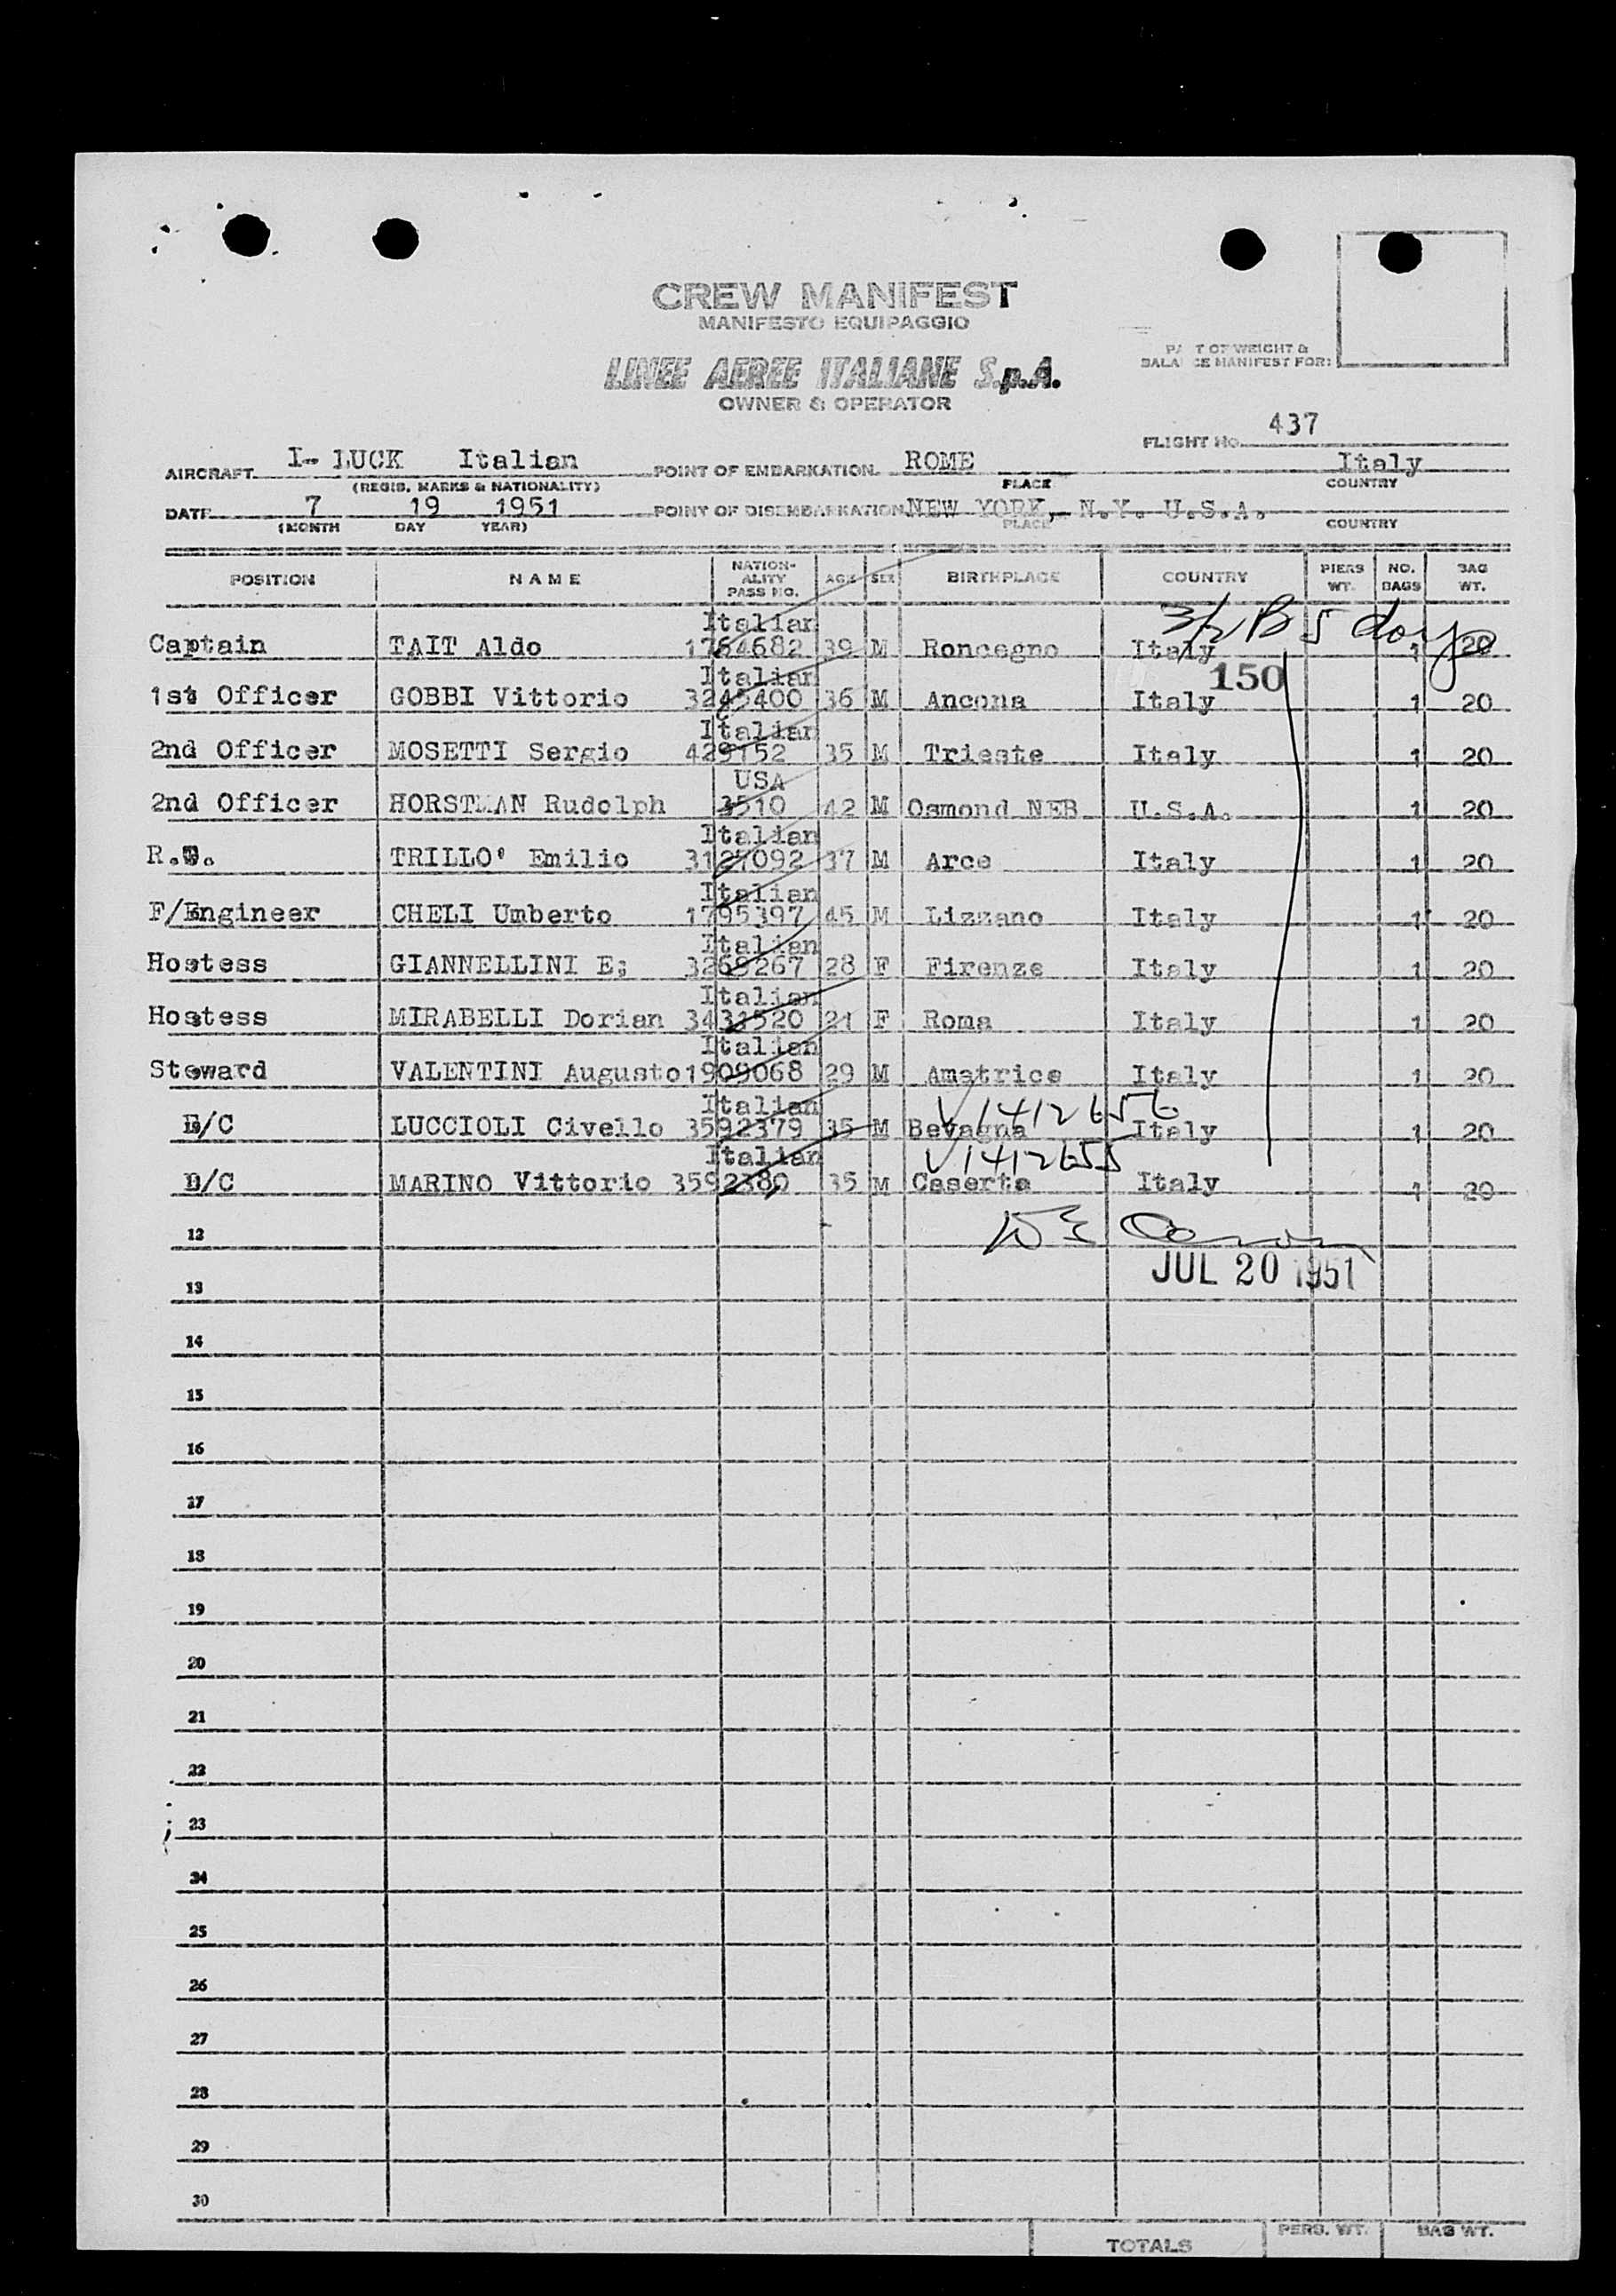 CREW MANIFEST
MANIFESTO EQUIPAGGIO
LINEE AEREE ITALIANE S.p.A.
OWNER & OPERATOR
PART OF WEIGHT &
BALANCE MANIFEST FOR:
FLIGHT No. 437
AIRCRAFT I- LUCK Italian POINT OF EMBARKATION ROME Italy
(REGIS. MARKS & NATIONALITY) PLACE COUNTRY
DATE 7 19 1951 POINT OF DISEMBARKATION NEW YORK, N.Y. U.S.A.
(MONTH DAY YEAR) PLACE COUNTRY
POSITION NAME NATION-ALITY PASS NO. AGE SEX BIRTHPLACE COUNTRY PIERS WT. NO. BAGS BAG WT.
3/2 B 5 days
Italian
Captain TAIT Aldo 1764682 39 M Roncegno Italy 1 20
150
Italian
1st Officer GOBBI Vittorio 3245400 36 M Ancona Italy 1 20
Italian
2nd Officer MOSETTI Sergio 429152 35 M Trieste Italy 1 20
USA
2nd Officer HORSTMAN Rudolph 3510 42 M Osmond NEB U.S.A. 1 20
Italian
R.T. TRILLO' Emilio 3127092 37 M Arce Italy 1 20
Italian
F/Engineer CHELI Umberto 1795397 45 M Lizzano Italy 1 20
Italian
Hostess GIANNELLINI E; 3269267 28 F Firenze Italy 1 20
Italian
Hostess MIRABELLI Dorian 3431520 21 F Roma Italy 1 20
Italian
Steward VALENTINI Augusto 1909068 29 M Amatrice Italy 1 20
Italian V1412656
E/C LUCCIOLI Civello 3592379 35 M Bevagna Italy 1 20
Italian V1412655
E/C MARINO Vittorio 3592380 35 M Caserta Italy 1 20
12
JUL 20 1951
13
14
15
16
17
18
19
20
21
22
23
24
25
26
27
28
29
30
TOTALS PERS. WT. BAG WT.